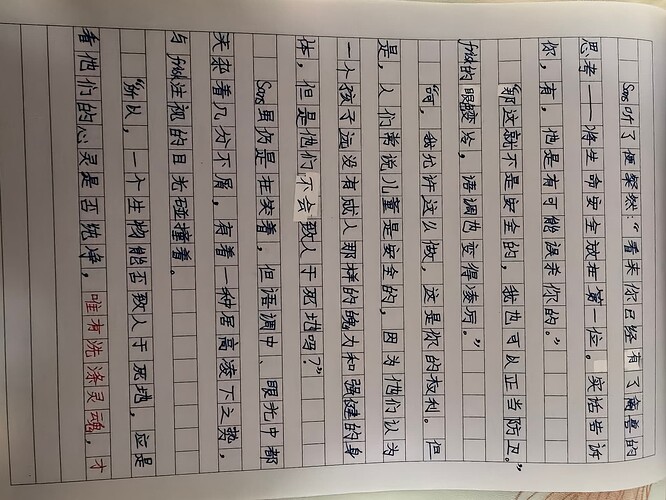 Sans听了便粲然:“看来你已经有了禽兽的
思考——将生命安全放在第一位。实话告诉
你,有,他是有可能误杀你的。”
“那这就不是安全的,我也可以正当防卫。”
frisk的眼变冷,语调也变得凌厉。”
“呵,我允许这么做,这是你的权利。但
是,人们常说儿童是安全的,因为他们认为
一个孩子远没有成人那样的魄力和强健的身
体,但是他们不会致人于死地吗?”
Sans虽仍是在笑着,但语调中、眼光中都
夹杂着几分不屑,有着一种居高凌下之势,
与frisk注视的目光碰撞着。
“所以,一个生物能否致人于死地,应是
看他们的心灵是否纯净,唯有洗涤灵魂,才